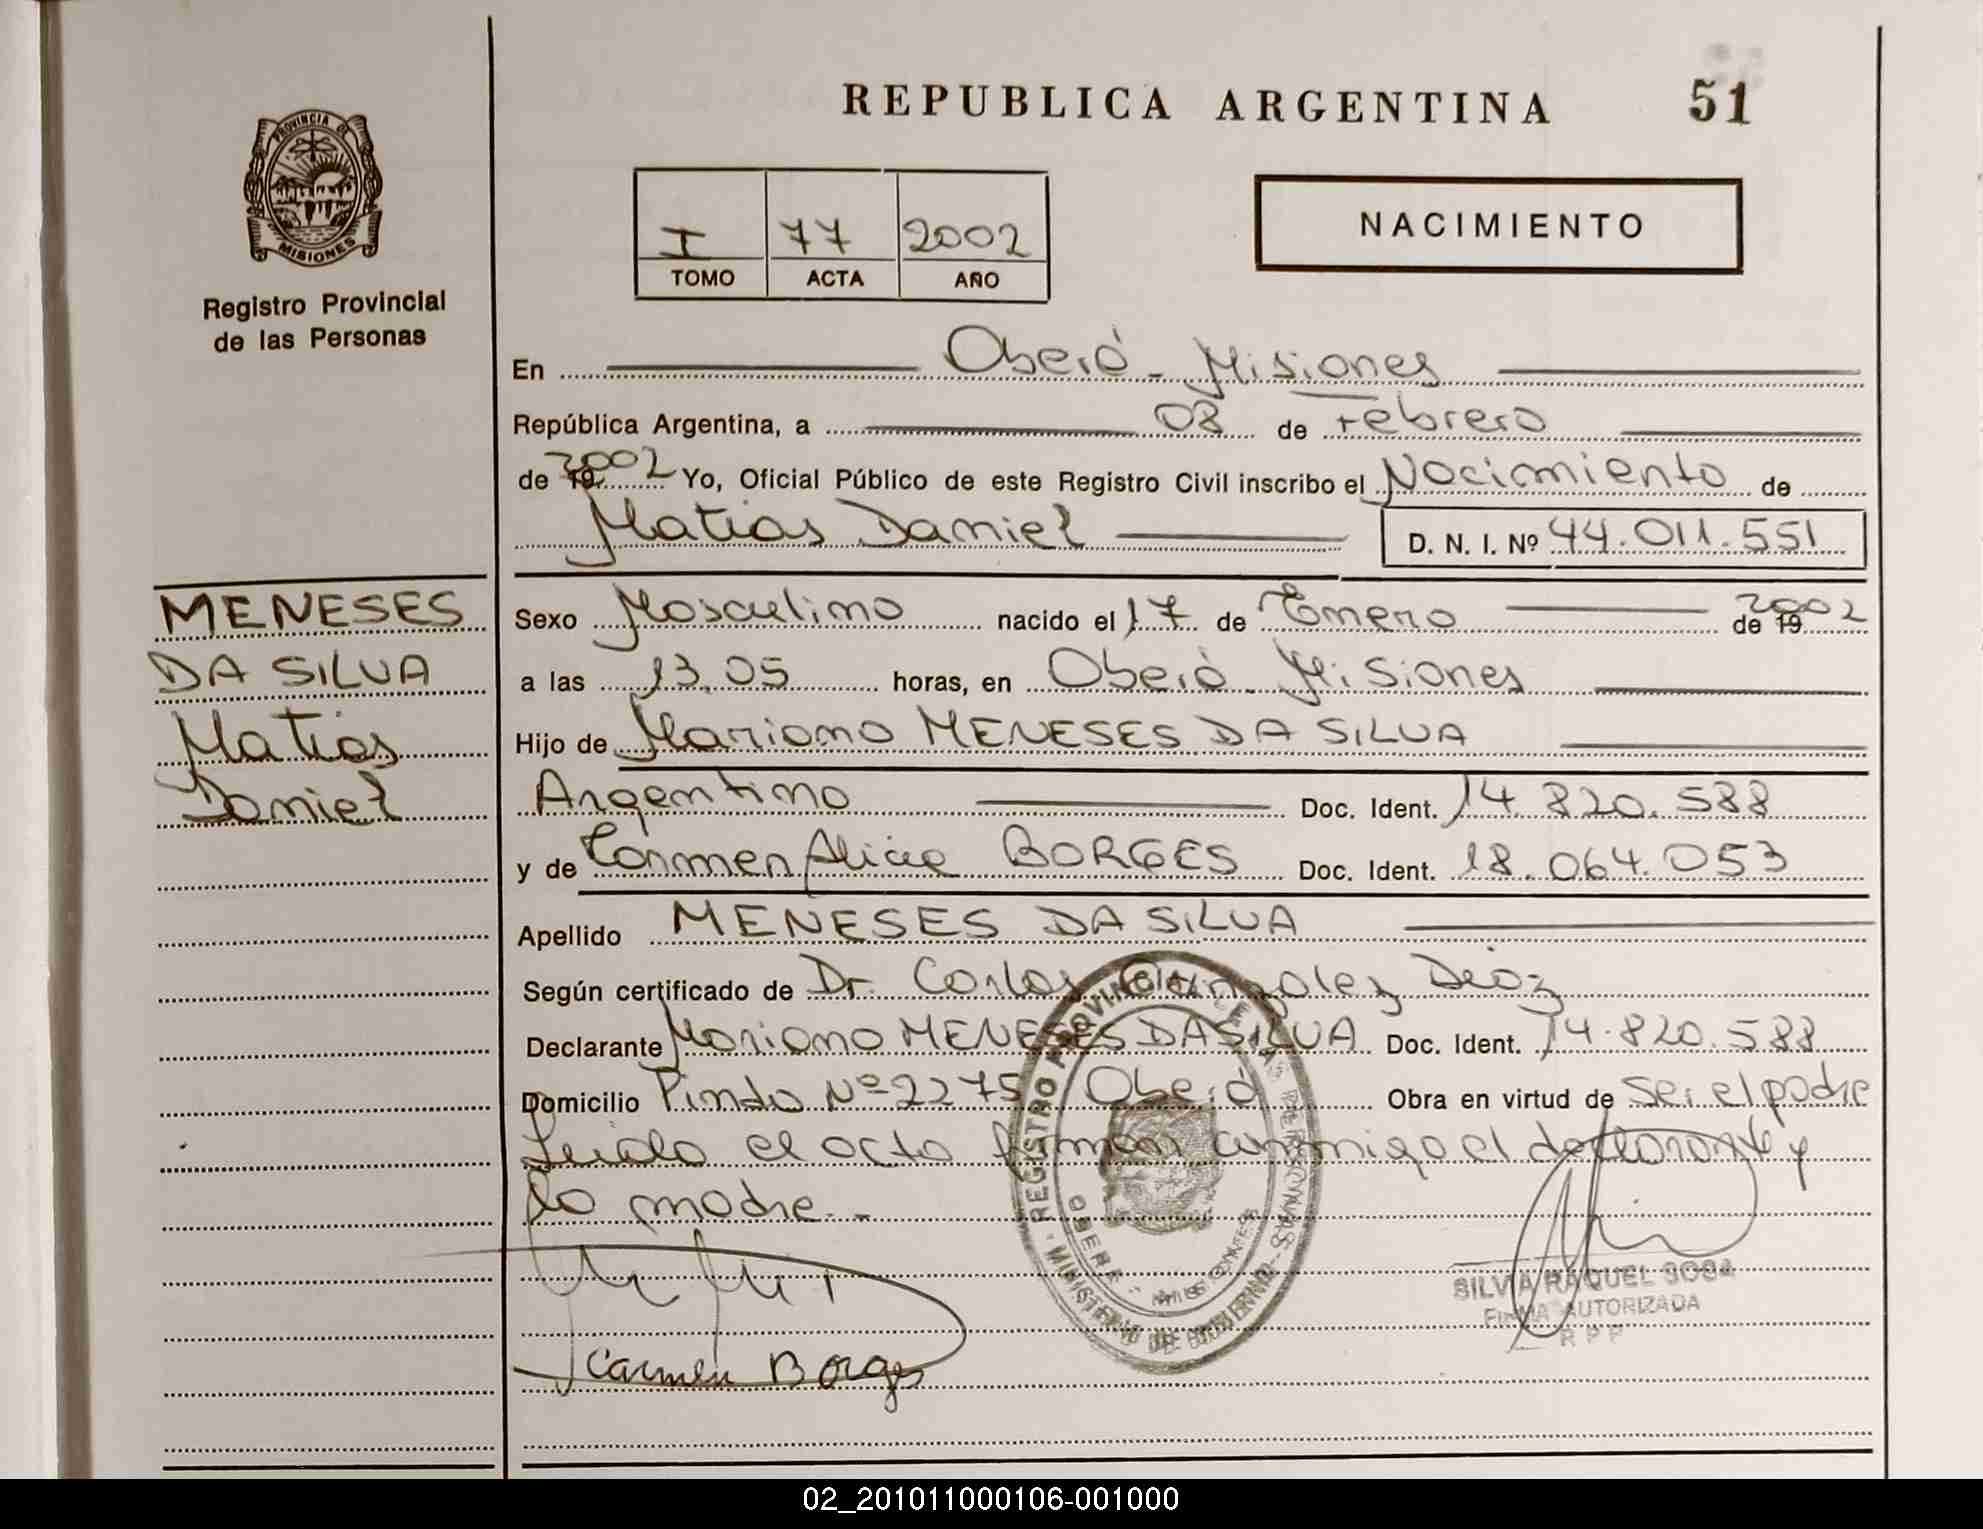 REPUBLICA ARGENTINA 51
PROVINCIA DE
MISIONES
Registro Provincial
de las Personas
I 77 2002
TOMO ACTA AÑO
NACIMIENTO
En Oberá - Misiones
República Argentina, a 08 de Febrero
de 19 2002 Yo, Oficial Público de este Registro Civil inscribo el Nacimiento de
Matias Daniel D. N. I. Nº 44.011.551
MENESES
DA SILVA
Matias
Daniel
Sexo Masculino nacido el 17 de Enero de 19 2002
a las 13.05 horas, en Oberá - Misiones
Hijo de Mariano MENESES DA SILVA
Argentino Doc. Ident. 14.820.588
y de Carmen Alicia BORGES Doc. Ident. 18.064.053
Apellido MENESES DA SILVA
Según certificado de Dr. Carlos Gonzalez Diaz
Declarante Mariano MENESES DA SILVA Doc. Ident. 14.820.588
Domicilio Pindo Nº 2275 Oberá Obra en virtud de ser el padre
Leida el acta firman conmigo el declarante y
la madre.-
REGISTRO PROVINCIAL DE LAS PERSONAS
MINISTERIO DE GOBIERNO
OBERA
MISIONES
SILVIA RAQUEL SOSA
FIRMA AUTORIZADA
R P P
Carmen Borges
02_201011000106-001000